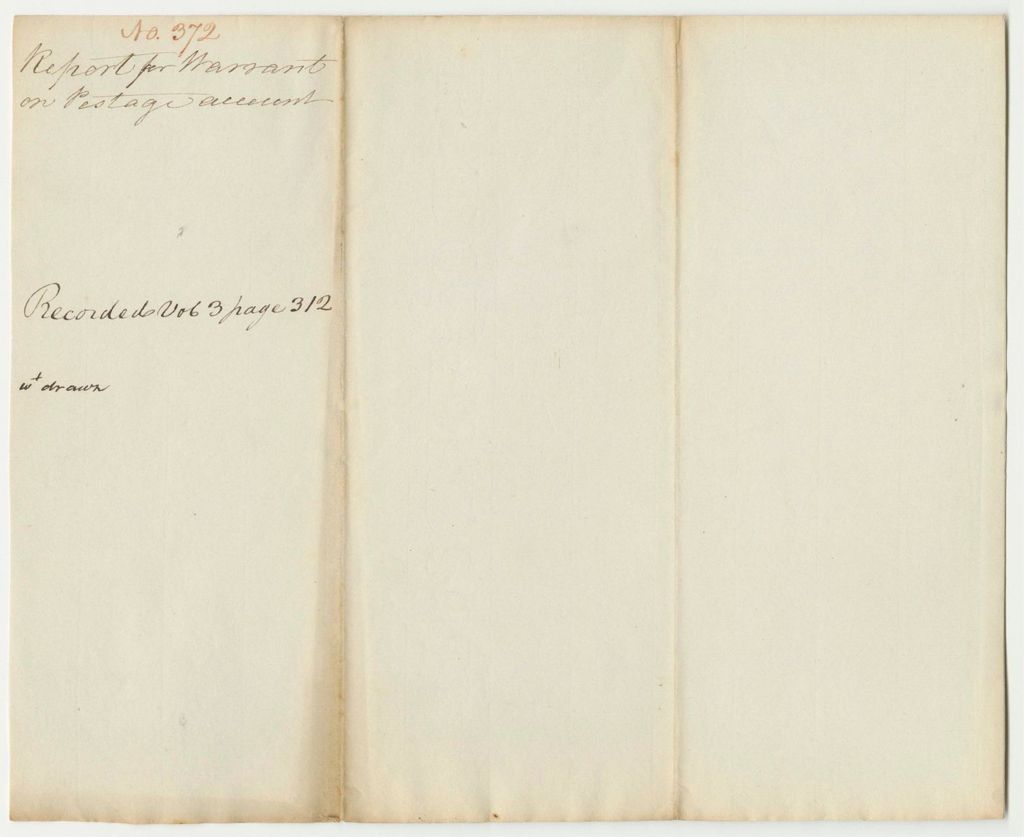 No. 372
Report for Warrant
on Postage account
Recorded Vol 3 page 312
wt drawn